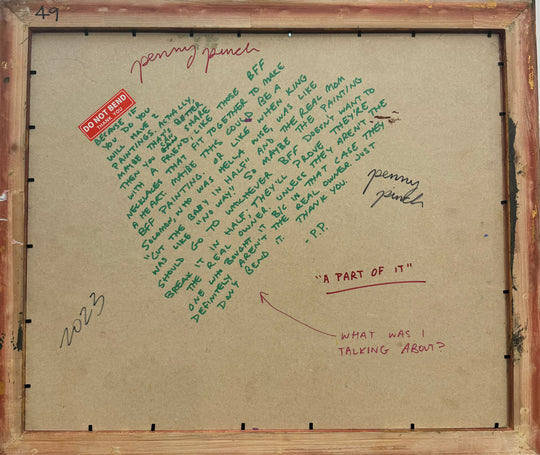 49
penny pinch
DO NOT BEND
THANK YOU
BECAUSE IF
YOU DO YOU
WILL HAVE TWO
PAINTINGS. ACTUALLY,
MAYBE THAT'S BETTER.
THEN YOU CAN SHARE
WITH A FRIEND, LIKE THOSE BFF
NECKLACES THAT FIT TOGETHER TO MAKE
A HEART. MAYBE THIS COULD BE A
BFF PAINTING. OR LIKE WHEN KING
SOLOMON, WHO WAS HELLA WISE, WAS LIKE
"CUT THE BABY IN HALF" AND THE REAL MOM
WAS LIKE "NO WAY!" SO MAYBE THE PAINTING
SHOULD GO TO WHICHEVER BFF DOESN'T WANT TO
BREAK IT IN HALF, THEY'LL PROVE THEY'RE
THE REAL OWNER. UNLESS THEY AREN'T THE
ONE WHO BOUGHT IT B/C IN THAT CASE THEY
DEFINITELY AREN'T THE REAL OWNER. JUST
DON'T BEND IT. THANK YOU.
-P.P.
penny
pinch
"A PART OF IT"
2023
WHAT WAS I
TALKING ABOUT?